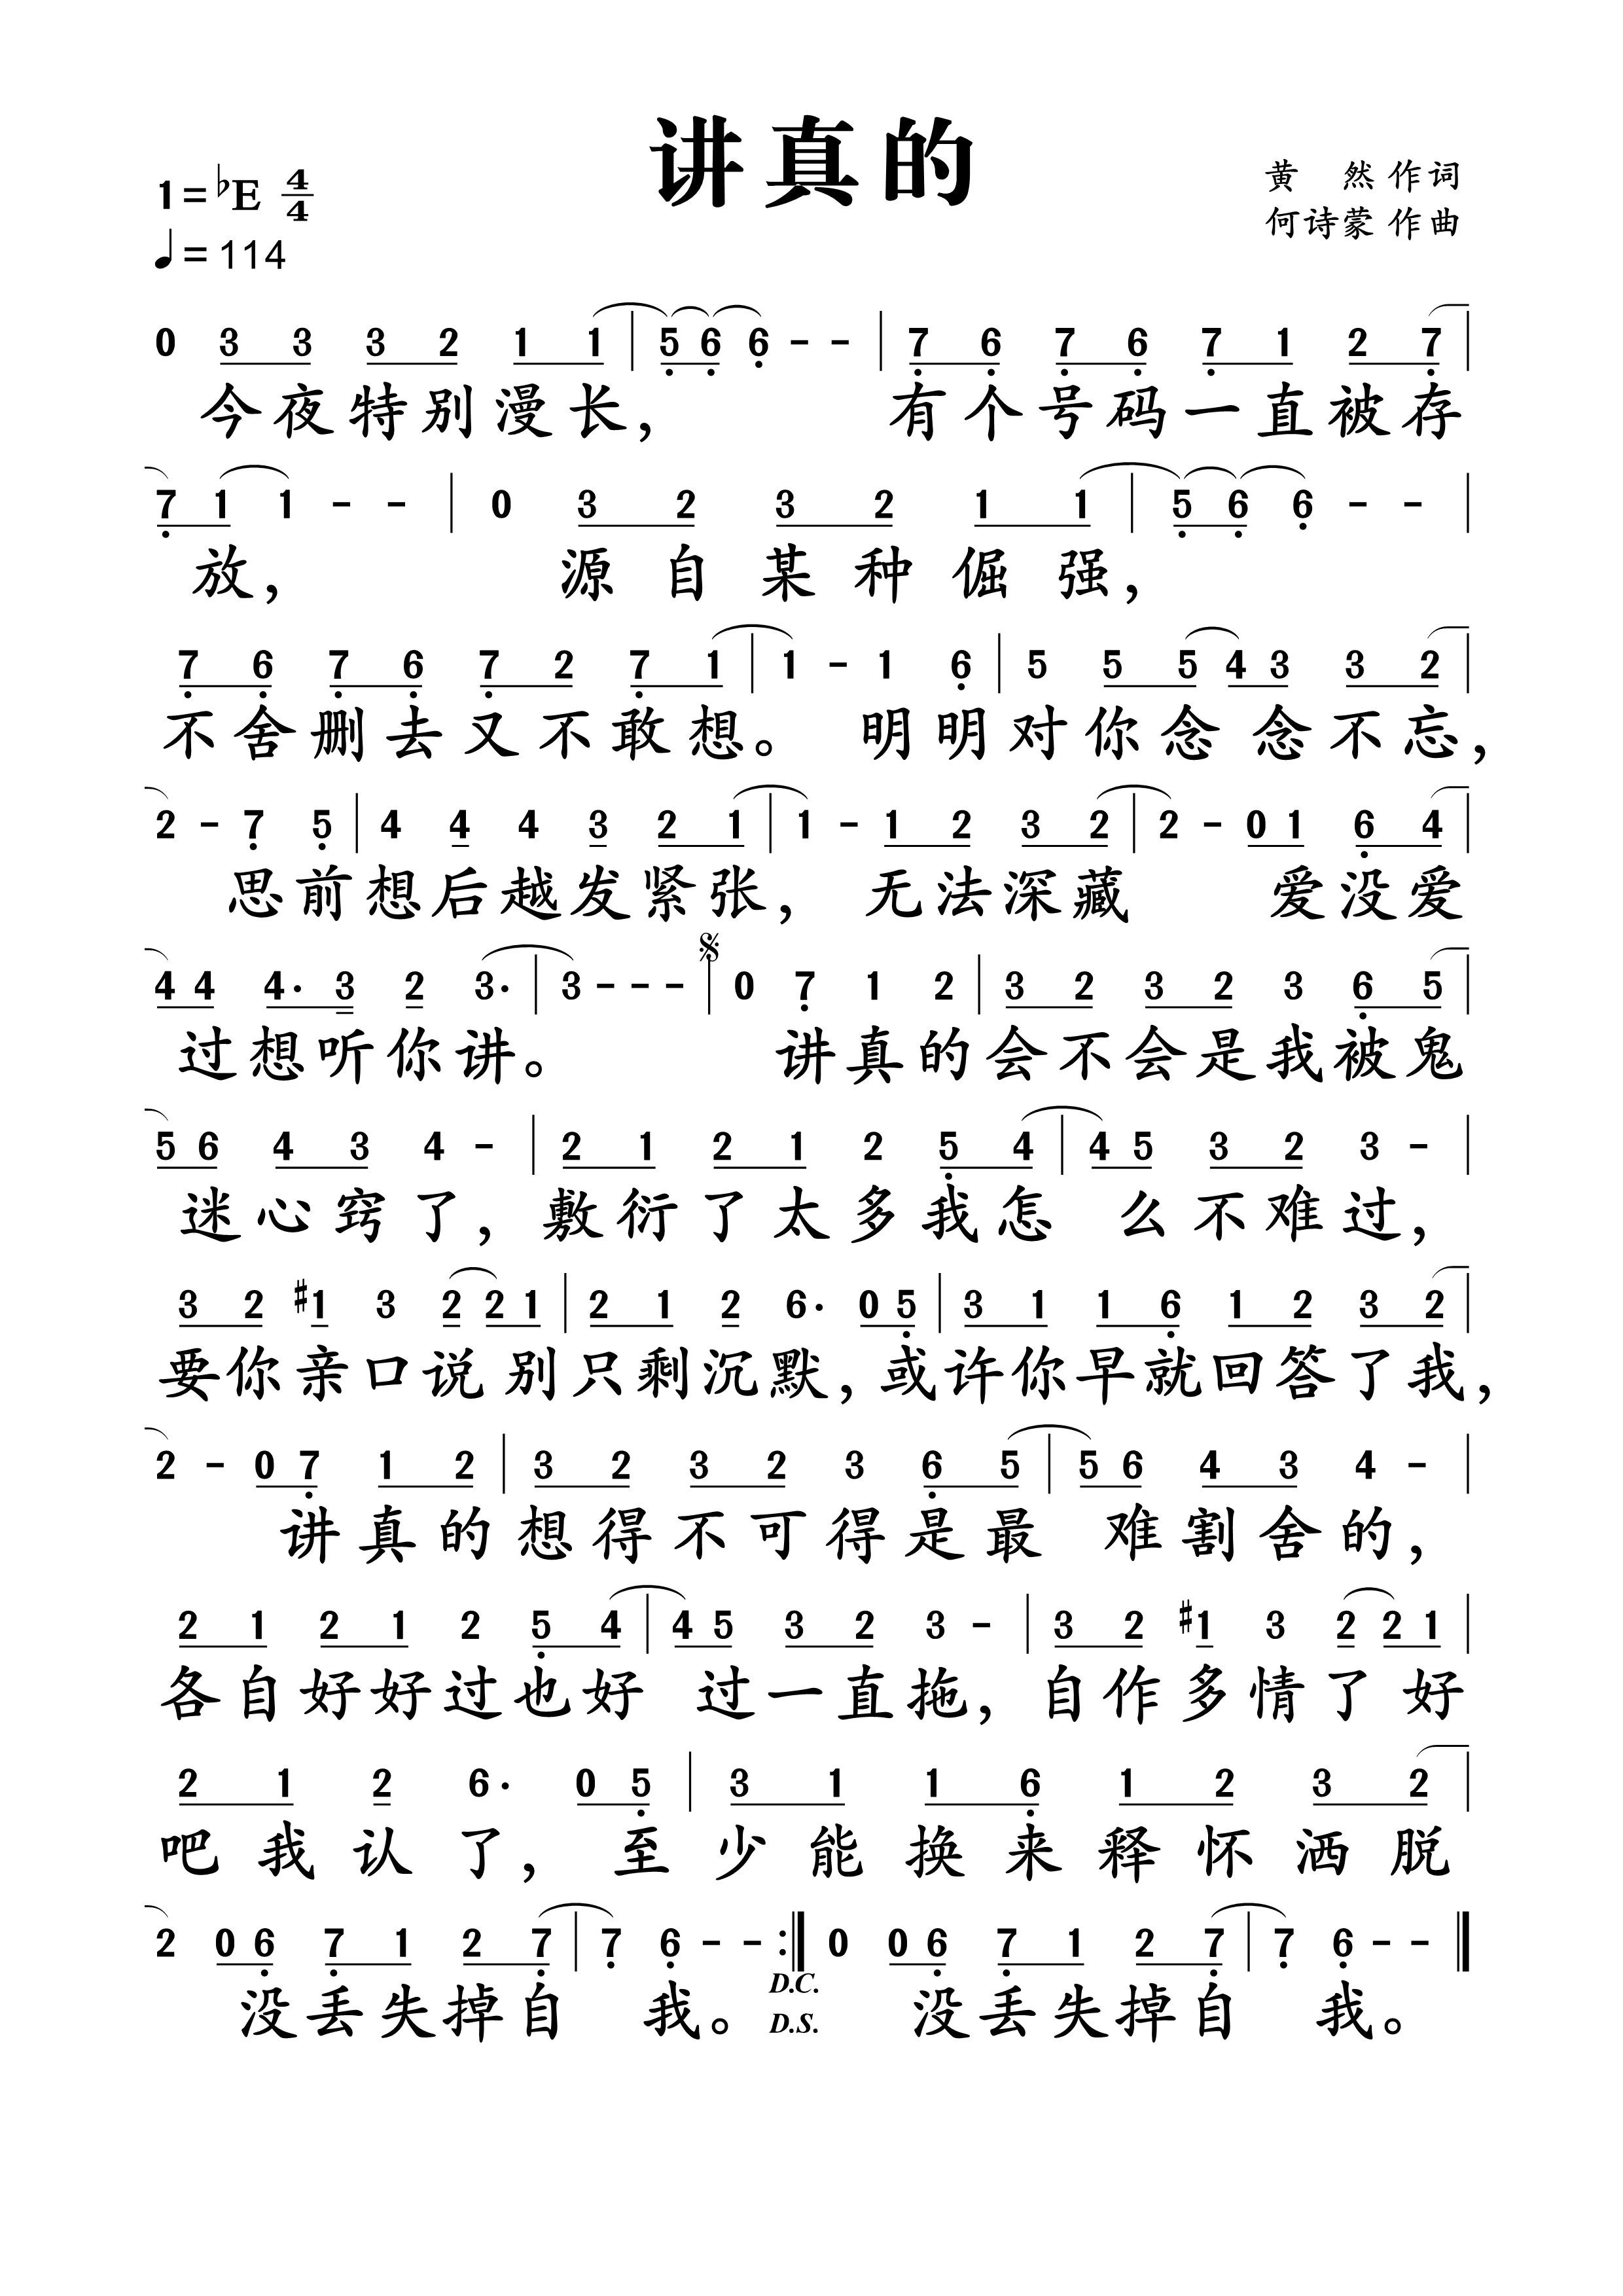 讲真的
1=♭E 4/4
♩= 114
黄 然 作词
何诗蒙 作曲
0 3 3 3 2 1 1 | 5̣ 6̣ 6̣ - - | 7̣ 6̣ 7̣ 6̣ 7̣ 1 2 7̣ |
今夜特别漫长， 有个号码一直被存
7̣ 1 1 - - | 0 3 2 3 2 1 1 | 5̣ 6̣ 6̣ - - |
放， 源自某种倔强，
7̣ 6̣ 7̣ 6̣ 7̣ 2 7̣ 1 | 1 - 1 6̣ | 5 5 5 4 3 3 2 |
不舍删去又不敢想。 明明对你念念不忘，
2 - 7̣ 5̣ | 4 4 4 3 2 1 | 1 - 1 2 3 2 | 2 - 0 1 6̣ 4 |
思前想后越发紧张， 无法深藏 爱没爱
4 4 4· 3 2 3· | 3 - - - 𝄋 | 0 7̣ 1 2 | 3 2 3 2 3 6̣ 5 |
过想听你讲。 讲真的会不会是我被鬼
5 6 4 3 4 - | 2 1 2 1 2 5̣ 4 | 4 5 3 2 3 - |
迷心窍了， 敷衍了太多我怎 么不难过，
3 2 ♯1 3 2 2 1 | 2 1 2 6· 0 5̣ | 3 1 1 6̣ 1 2 3 2 |
要你亲口说 别只剩沉默， 或许你早就回答了我，
2 - 0 7̣ 1 2 | 3 2 3 2 3 6̣ 5 | 5 6 4 3 4 - |
讲真的想得不可得是最 难割舍的，
2 1 2 1 2 5̣ 4 | 4 5 3 2 3 - | 3 2 ♯1 3 2 2 1 |
各自好好过也好 过一直拖， 自作多情了 好
2 1 2 6· 0 5̣ | 3 1 1 6̣ 1 2 3 2 |
吧我认了， 至少能换来释怀洒脱
2 0 6̣ 7̣ 1 2 7̣ | 7̣ 6̣ - - :‖ 0 0 6̣ 7̣ 1 2 7̣ | 7̣ 6̣ - - ‖
D.C.
没丢失掉自 我。 D.S. 没丢失掉自 我。